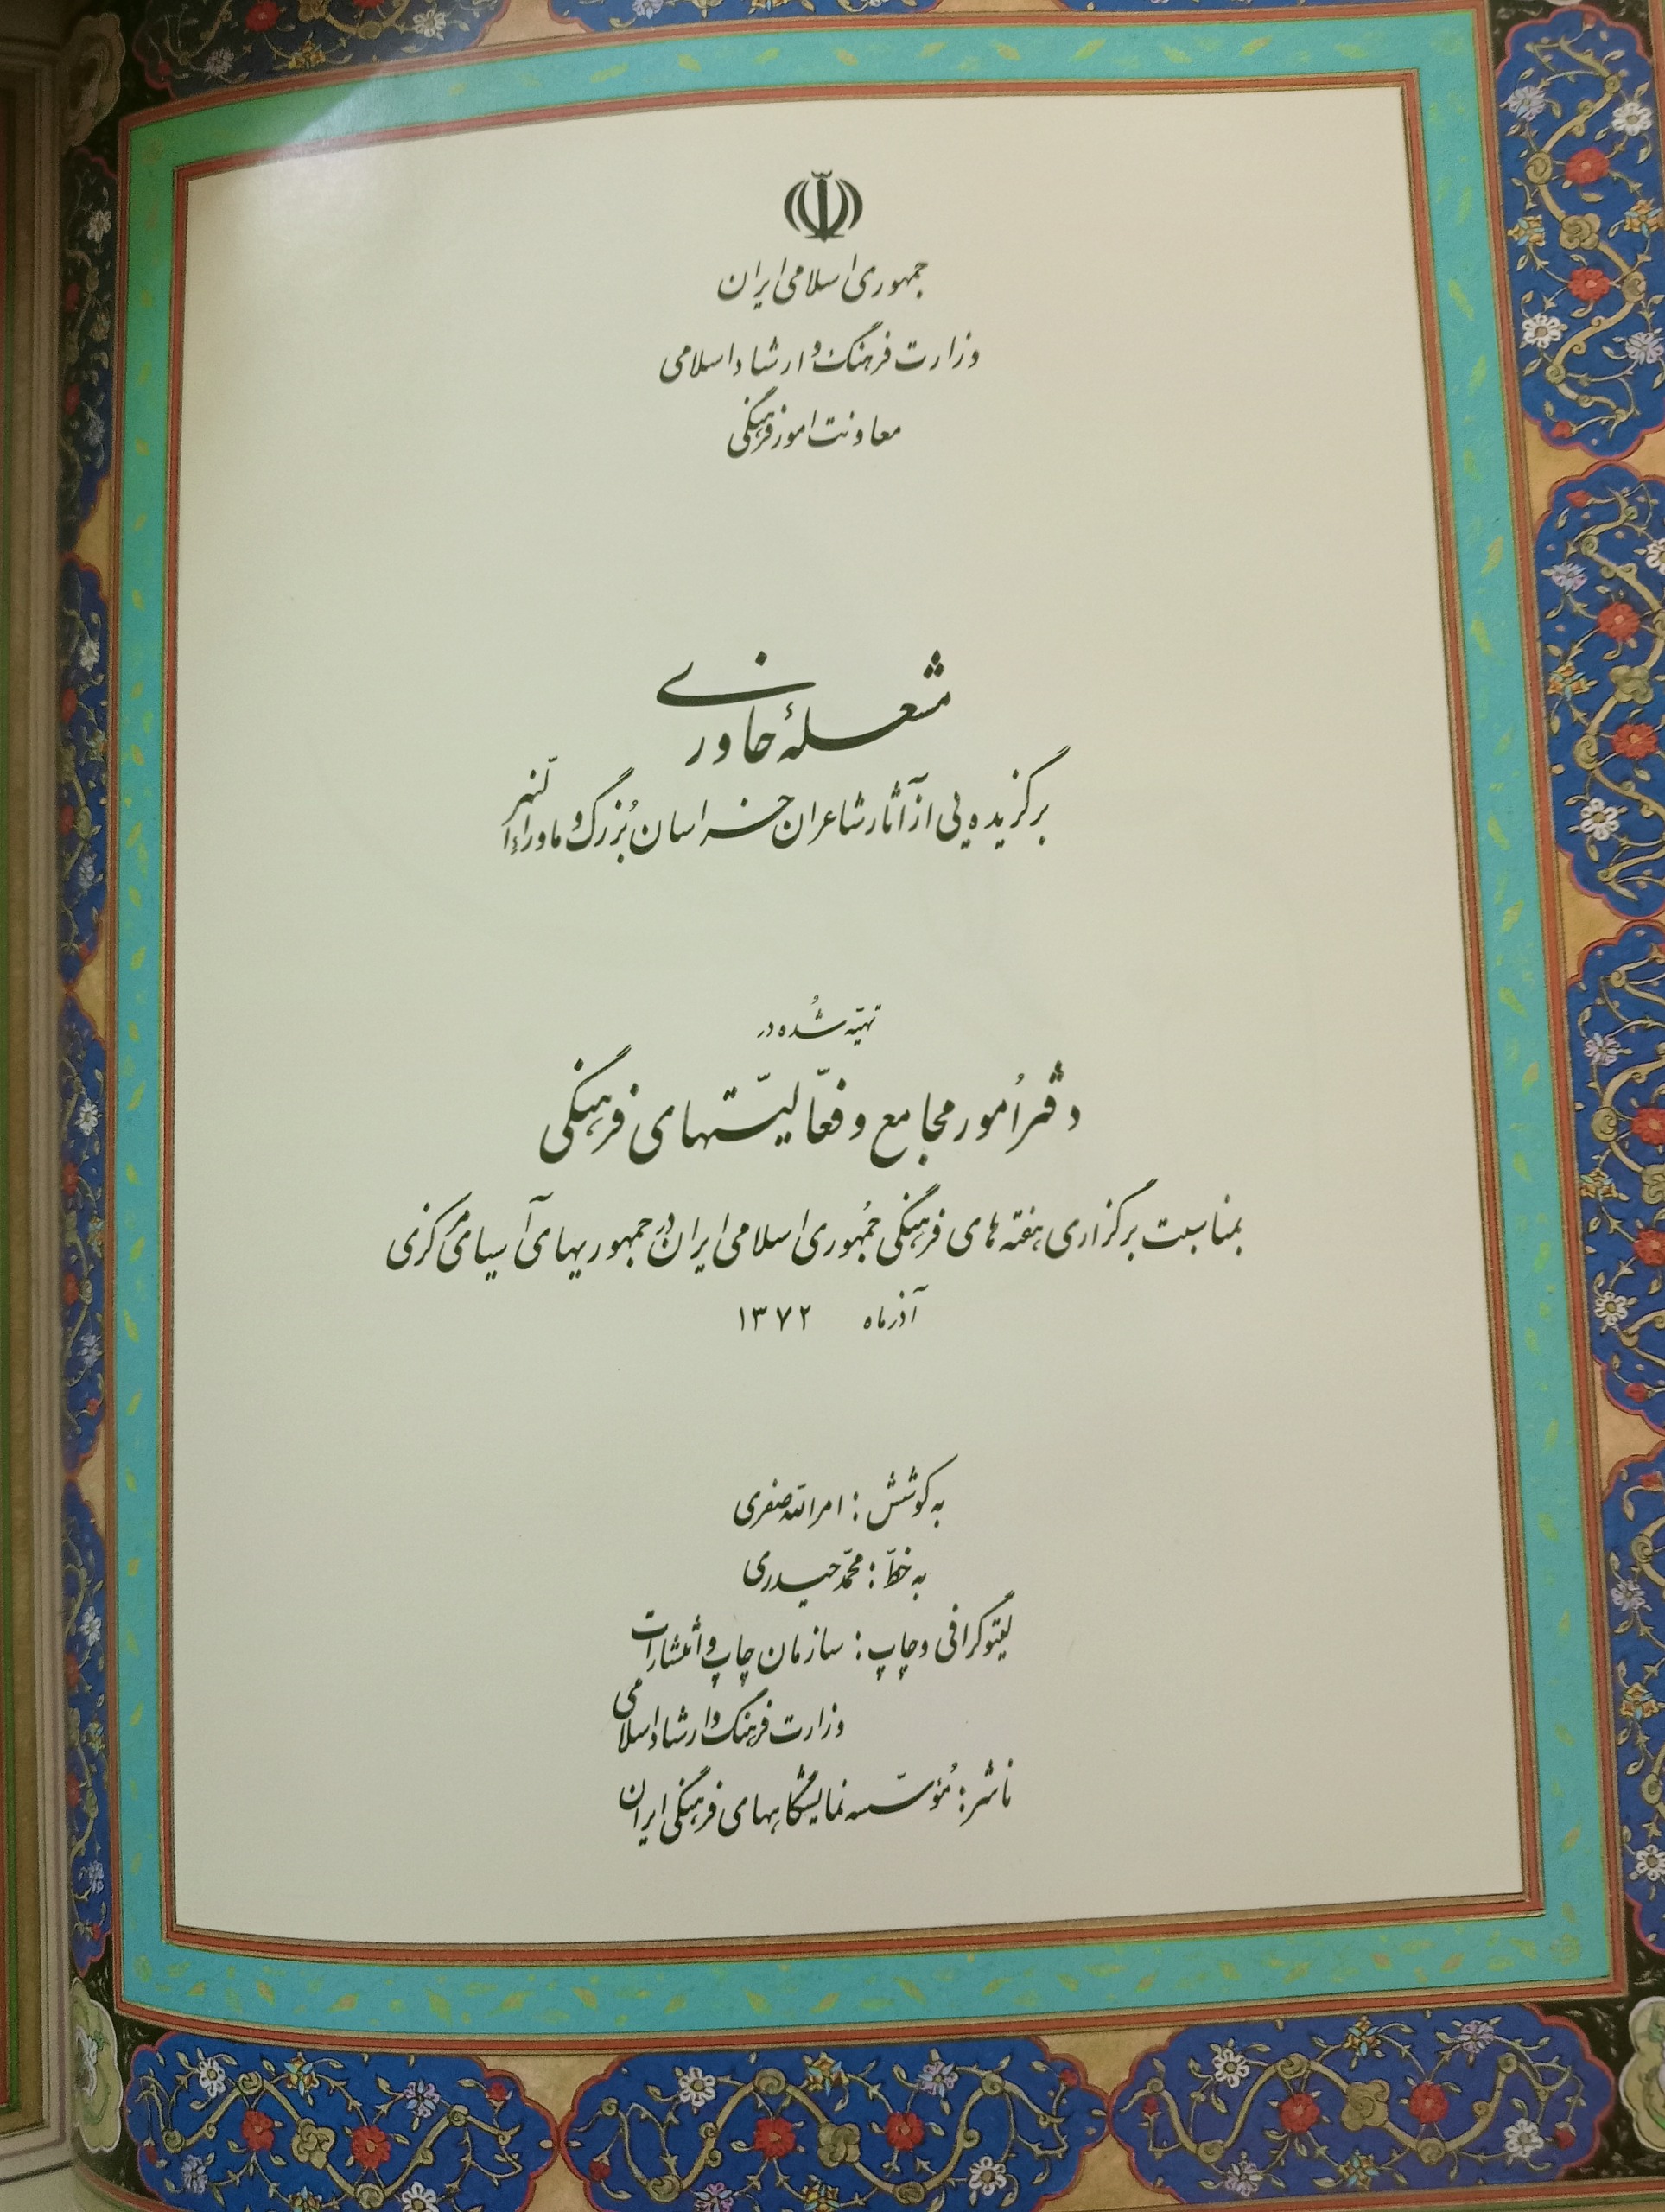 جمهوری اسلامی ایران
وزارت فرهنگ و ارشاد اسلامی
معاونت امور فرهنگی
شعلهٔ خاوری
برگزیده یی از آثار شاعران خراسان بُزرگ و ماوراءالنّهر
تهیّه شُده در
دفتر اُمور مجامع و فعّالیّتهای فرهنگی
بمناسبت برگزاری هفته های فرهنگی جُمهوری اسلامی ایران در جمهوریهای آسیای مرکزی
آذرماه ۱۳۷۲
به کوشش : امرالله صفری
به خطّ : محمّد حیدری
لیتوگرافی و چاپ : سازمان چاپ و انتشارات
وزارت فرهنگ و ارشاد اسلامی
ناشر : مُؤسّسه نمایشگاههای فرهنگی ایران